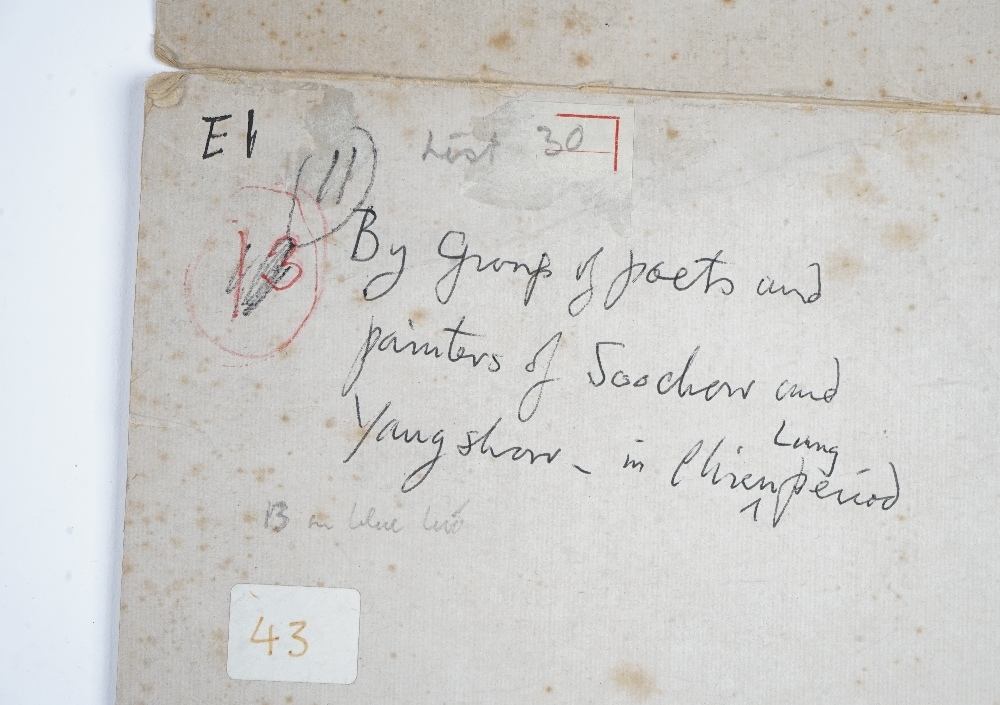 E1
11
List 30
13
By Group of poets and
painters of Soochow and
Yangshow - in Chien Lung period
13 on blue list
43